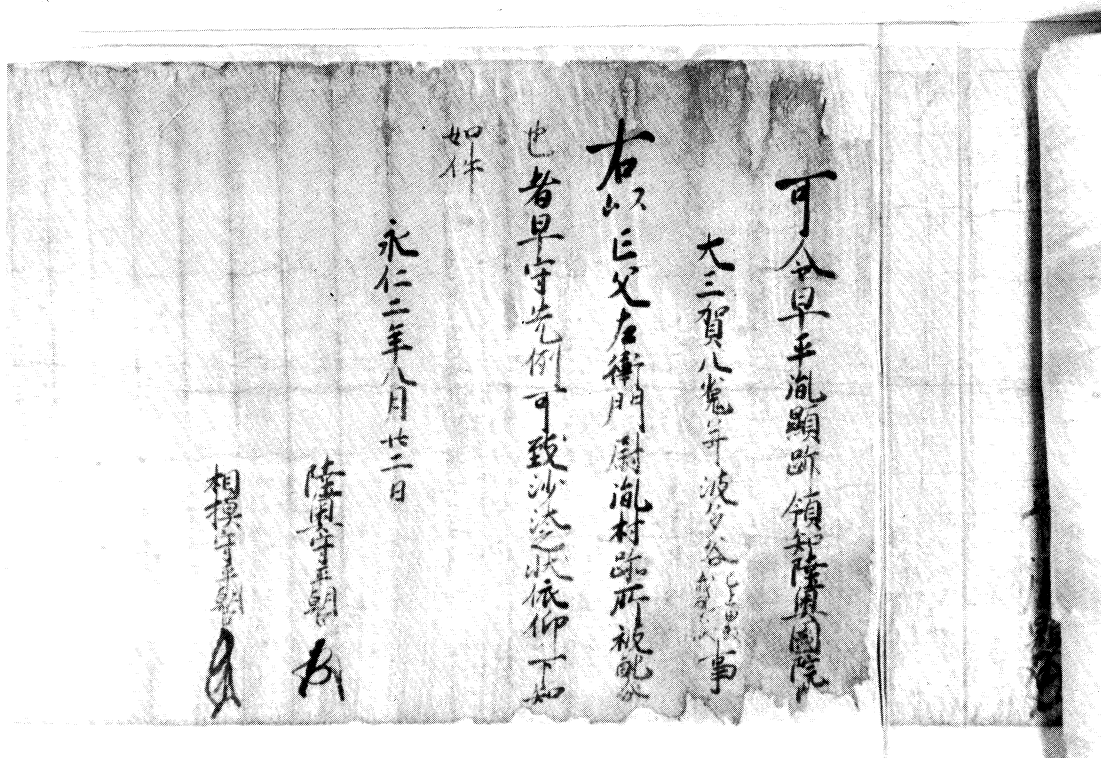 可令早平胤顕跡領知陸奥國院内
大三賀八鬼并波多谷事
右以亡父左衛門尉胤村跡所被配分
也者早守先例可致沙汰之状依仰下知
如件
永仁二年八月廿二日
陸奥守平朝臣
相模守平朝臣